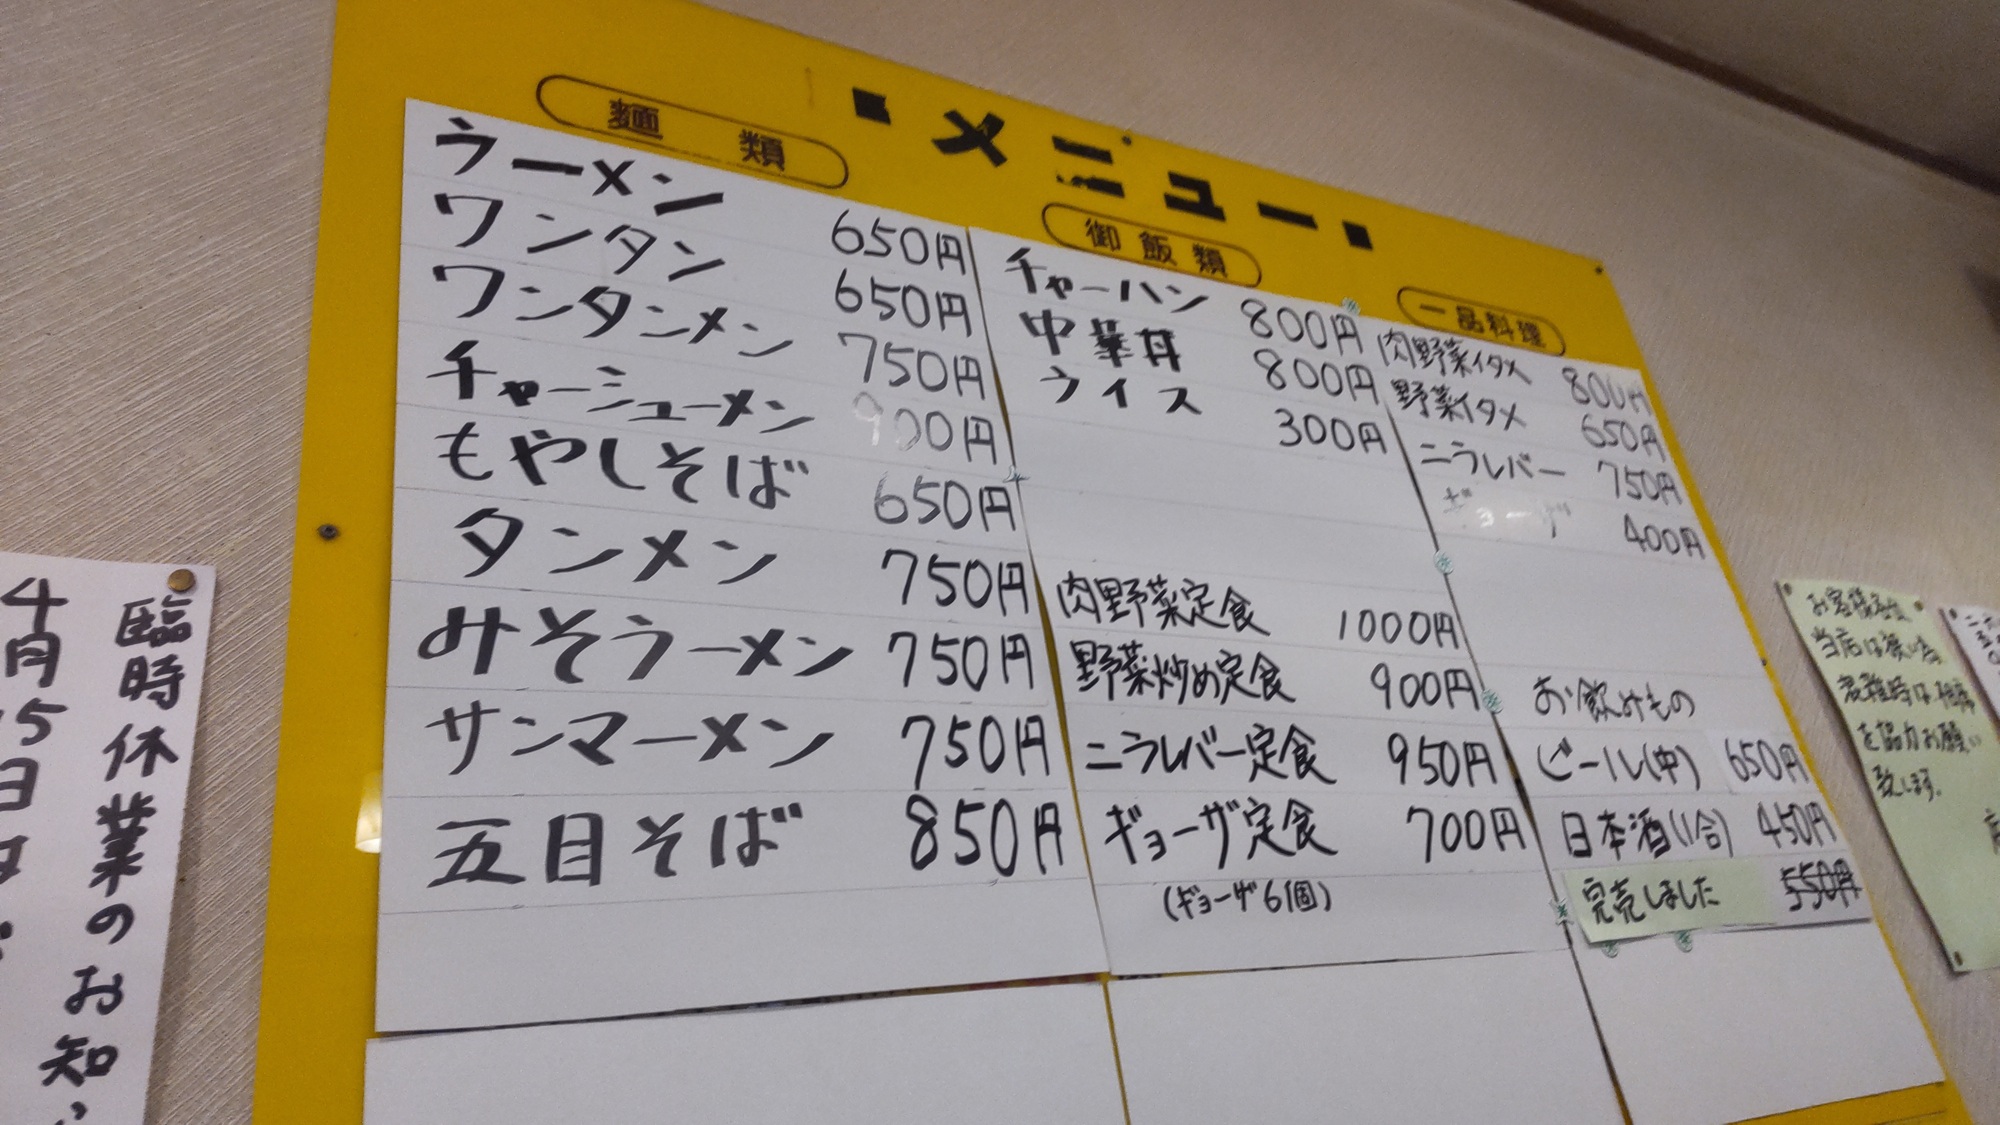 メニュー
麺類
ラーメン 650円
ワンタン 650円
ワンタンメン 750円
チャーシューメン 900円
もやしそば 650円
タンメン 750円
みそラーメン 750円
サンマーメン 750円
五目そば 850円
御飯類
チャーハン 800円
中華丼 800円
ライス 300円
肉野菜定食 1000円
野菜炒め定食 900円
ニラレバー定食 950円
ギョーザ定食 700円
(ギョーザ6個)
一品料理
肉野菜イタメ 800円
野菜イタメ 650円
ニラレバー 750円
ギョーザ 400円
お飲みもの
ビール(中) 650円
日本酒(1合) 450円
完売しました 550円
臨時休業のお知
4月
5日
当店は狭い為
を協力お願い
致します。